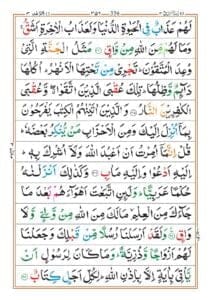 لَهُمْ عَذَابٌ فِي الْحَيٰوةِ الدُّنْيَا وَلَعَذَابُ الْاٰخِرَةِ اَشَقُّ ۚ
وَمَا لَهُمْ مِّنَ اللّٰهِ مِنْ وَّاقٍ ۝ مَثَلُ الْجَنَّةِ الَّتِيْ
وُعِدَ الْمُتَّقُوْنَ ؕ تَجْرِيْ مِنْ تَحْتِهَا الْاَنْهٰرُ ؕ اُكُلُهَا
دَآئِمٌ وَّظِلُّهَا ؕ تِلْكَ عُقْبَى الَّذِيْنَ اتَّقَوْا ۖ وَّعُقْبَى
الْكٰفِرِيْنَ النَّارُ ۝ وَالَّذِيْنَ اٰتَيْنٰهُمُ الْكِتٰبَ يَفْرَحُوْنَ
بِمَآ اُنْزِلَ اِلَيْكَ وَمِنَ الْاَحْزَابِ مَنْ يُّنْكِرُ بَعْضَهٗ ؕ
قُلْ اِنَّمَآ اُمِرْتُ اَنْ اَعْبُدَ اللّٰهَ وَلَآ اُشْرِكَ بِهٖ ؕ
اِلَيْهِ اَدْعُوْا وَاِلَيْهِ مَاٰبِ ۝ وَكَذٰلِكَ اَنْزَلْنٰهُ
حُكْمًا عَرَبِيًّا ؕ وَلَئِنِ اتَّبَعْتَ اَهْوَآءَهُمْ بَعْدَ مَا
جَآءَكَ مِنَ الْعِلْمِ ۙ مَا لَكَ مِنَ اللّٰهِ مِنْ وَّلِيٍّ وَّلَا
وَاقٍ ۝ وَلَقَدْ اَرْسَلْنَا رُسُلًا مِّنْ قَبْلِكَ وَجَعَلْنَا
لَهُمْ اَزْوَاجًا وَّذُرِّيَّةً ؕ وَمَا كَانَ لِرَسُوْلٍ اَنْ
يَّاْتِيَ بِاٰيَةٍ اِلَّا بِاِذْنِ اللّٰهِ ؕ لِكُلِّ اَجَلٍ كِتَابٌ ۝